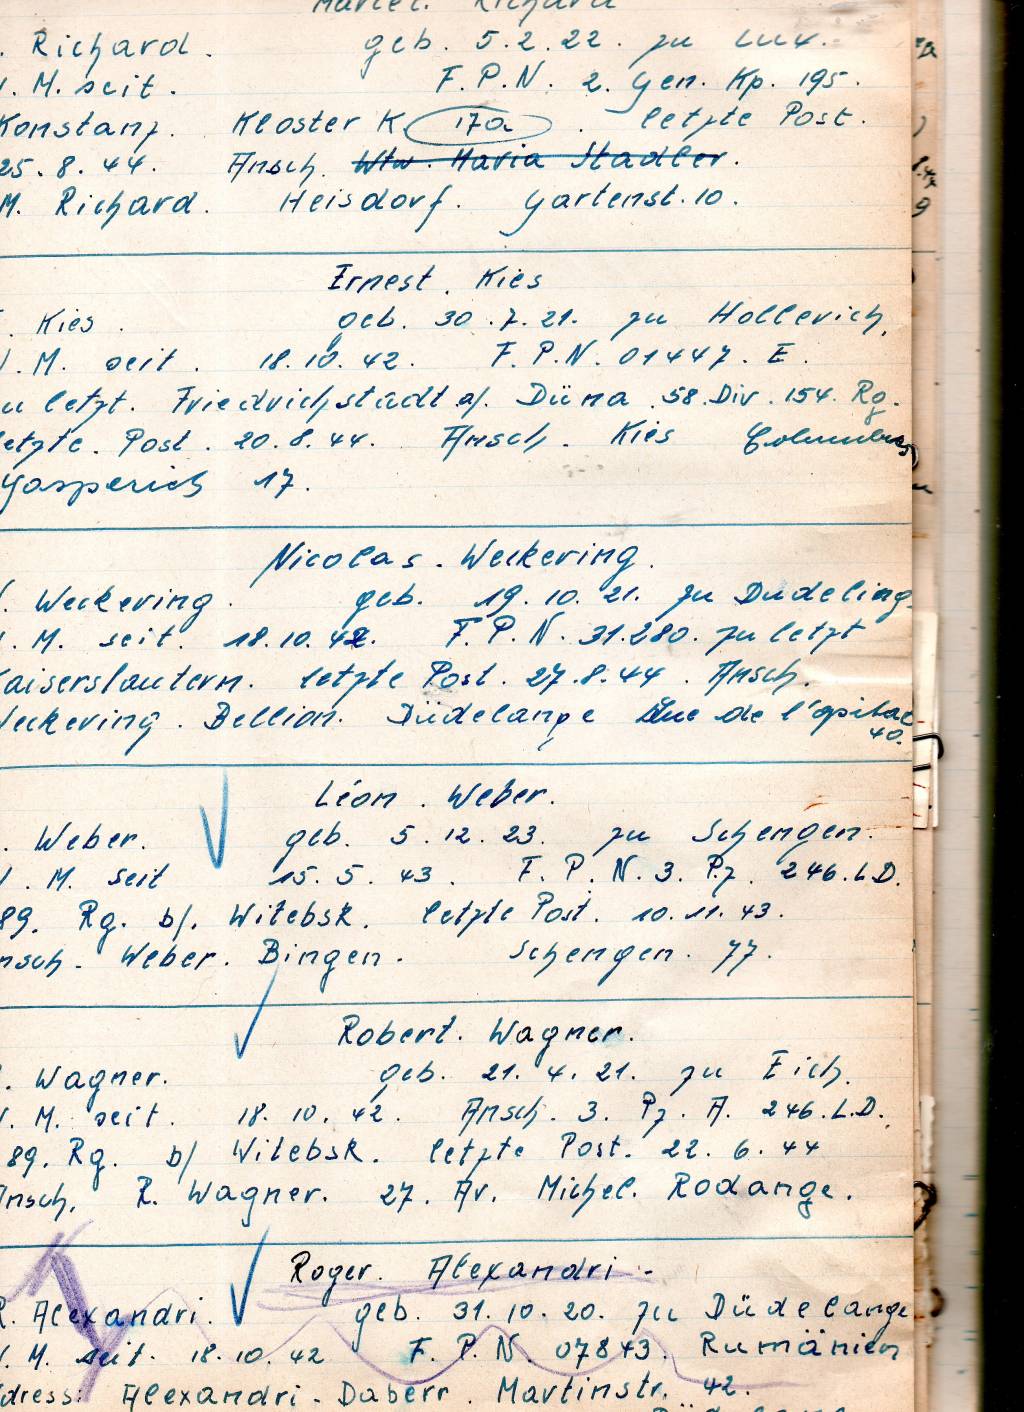 Marcel. Richard
. Richard. geb. 5.2.22. zu Lux.
. M. seit. F.P.N. 2. Gen. Kp. 195.
Konstanz. Kloster K. 17a. letzte Post.
25.8.44. Ansch. Wtw. Maria Stadler.
M. Richard. Heisdorf. Gartenst. 10.
Ernest. Kies
. Kies. geb. 30.7.21. zu Hollerich,
. M. seit. 18.10.42. F.P.N. 01447. E.
u letzt. Friedrichstadt a/. Düna 58. Div. 154. Rg.
etzte. Post. 20.8.44. Ansch. Kies Columbus
Gasperich 17.
Nicolas. Weckering.
. Weckering. geb. 19.10.21. zu Düdeling
. M. seit. 18.10.42. F.P.N. 31.280. zu letzt
aiserslautern. letzte Post. 27.8.44. Ansch.
Weckering. Bellion. Düdelange Rue de l'opital
40.
Léon. Weber.
. Weber. geb. 5.12.23. zu Schengen.
. M. seit 15.5.43. F.P.N. 3. Pz. 246.L.D.
89. Rg. b/. Witebsk. letzte Post. 10.11.43.
nsch. Weber. Bingen. Schengen. 77.
Robert. Wagner.
. Wagner. geb. 21.4.21. zu Eich.
. M. seit. 18.10.42. Ansch. 3. Pz. A. 246.L.D.
89. Rg. b/ Witebsk. letzte Post. 22.6.44
Ansch. R. Wagner. 27. Av. Michel. Rodange.
Roger. Alexandri -
R. Alexandri. geb. 31.10.20. zu Düdelange
. M. seit. 18.10.42 F.P.N. 07843. Rumänien
dress: Alexandri - Daberr. Martinstr. 42.